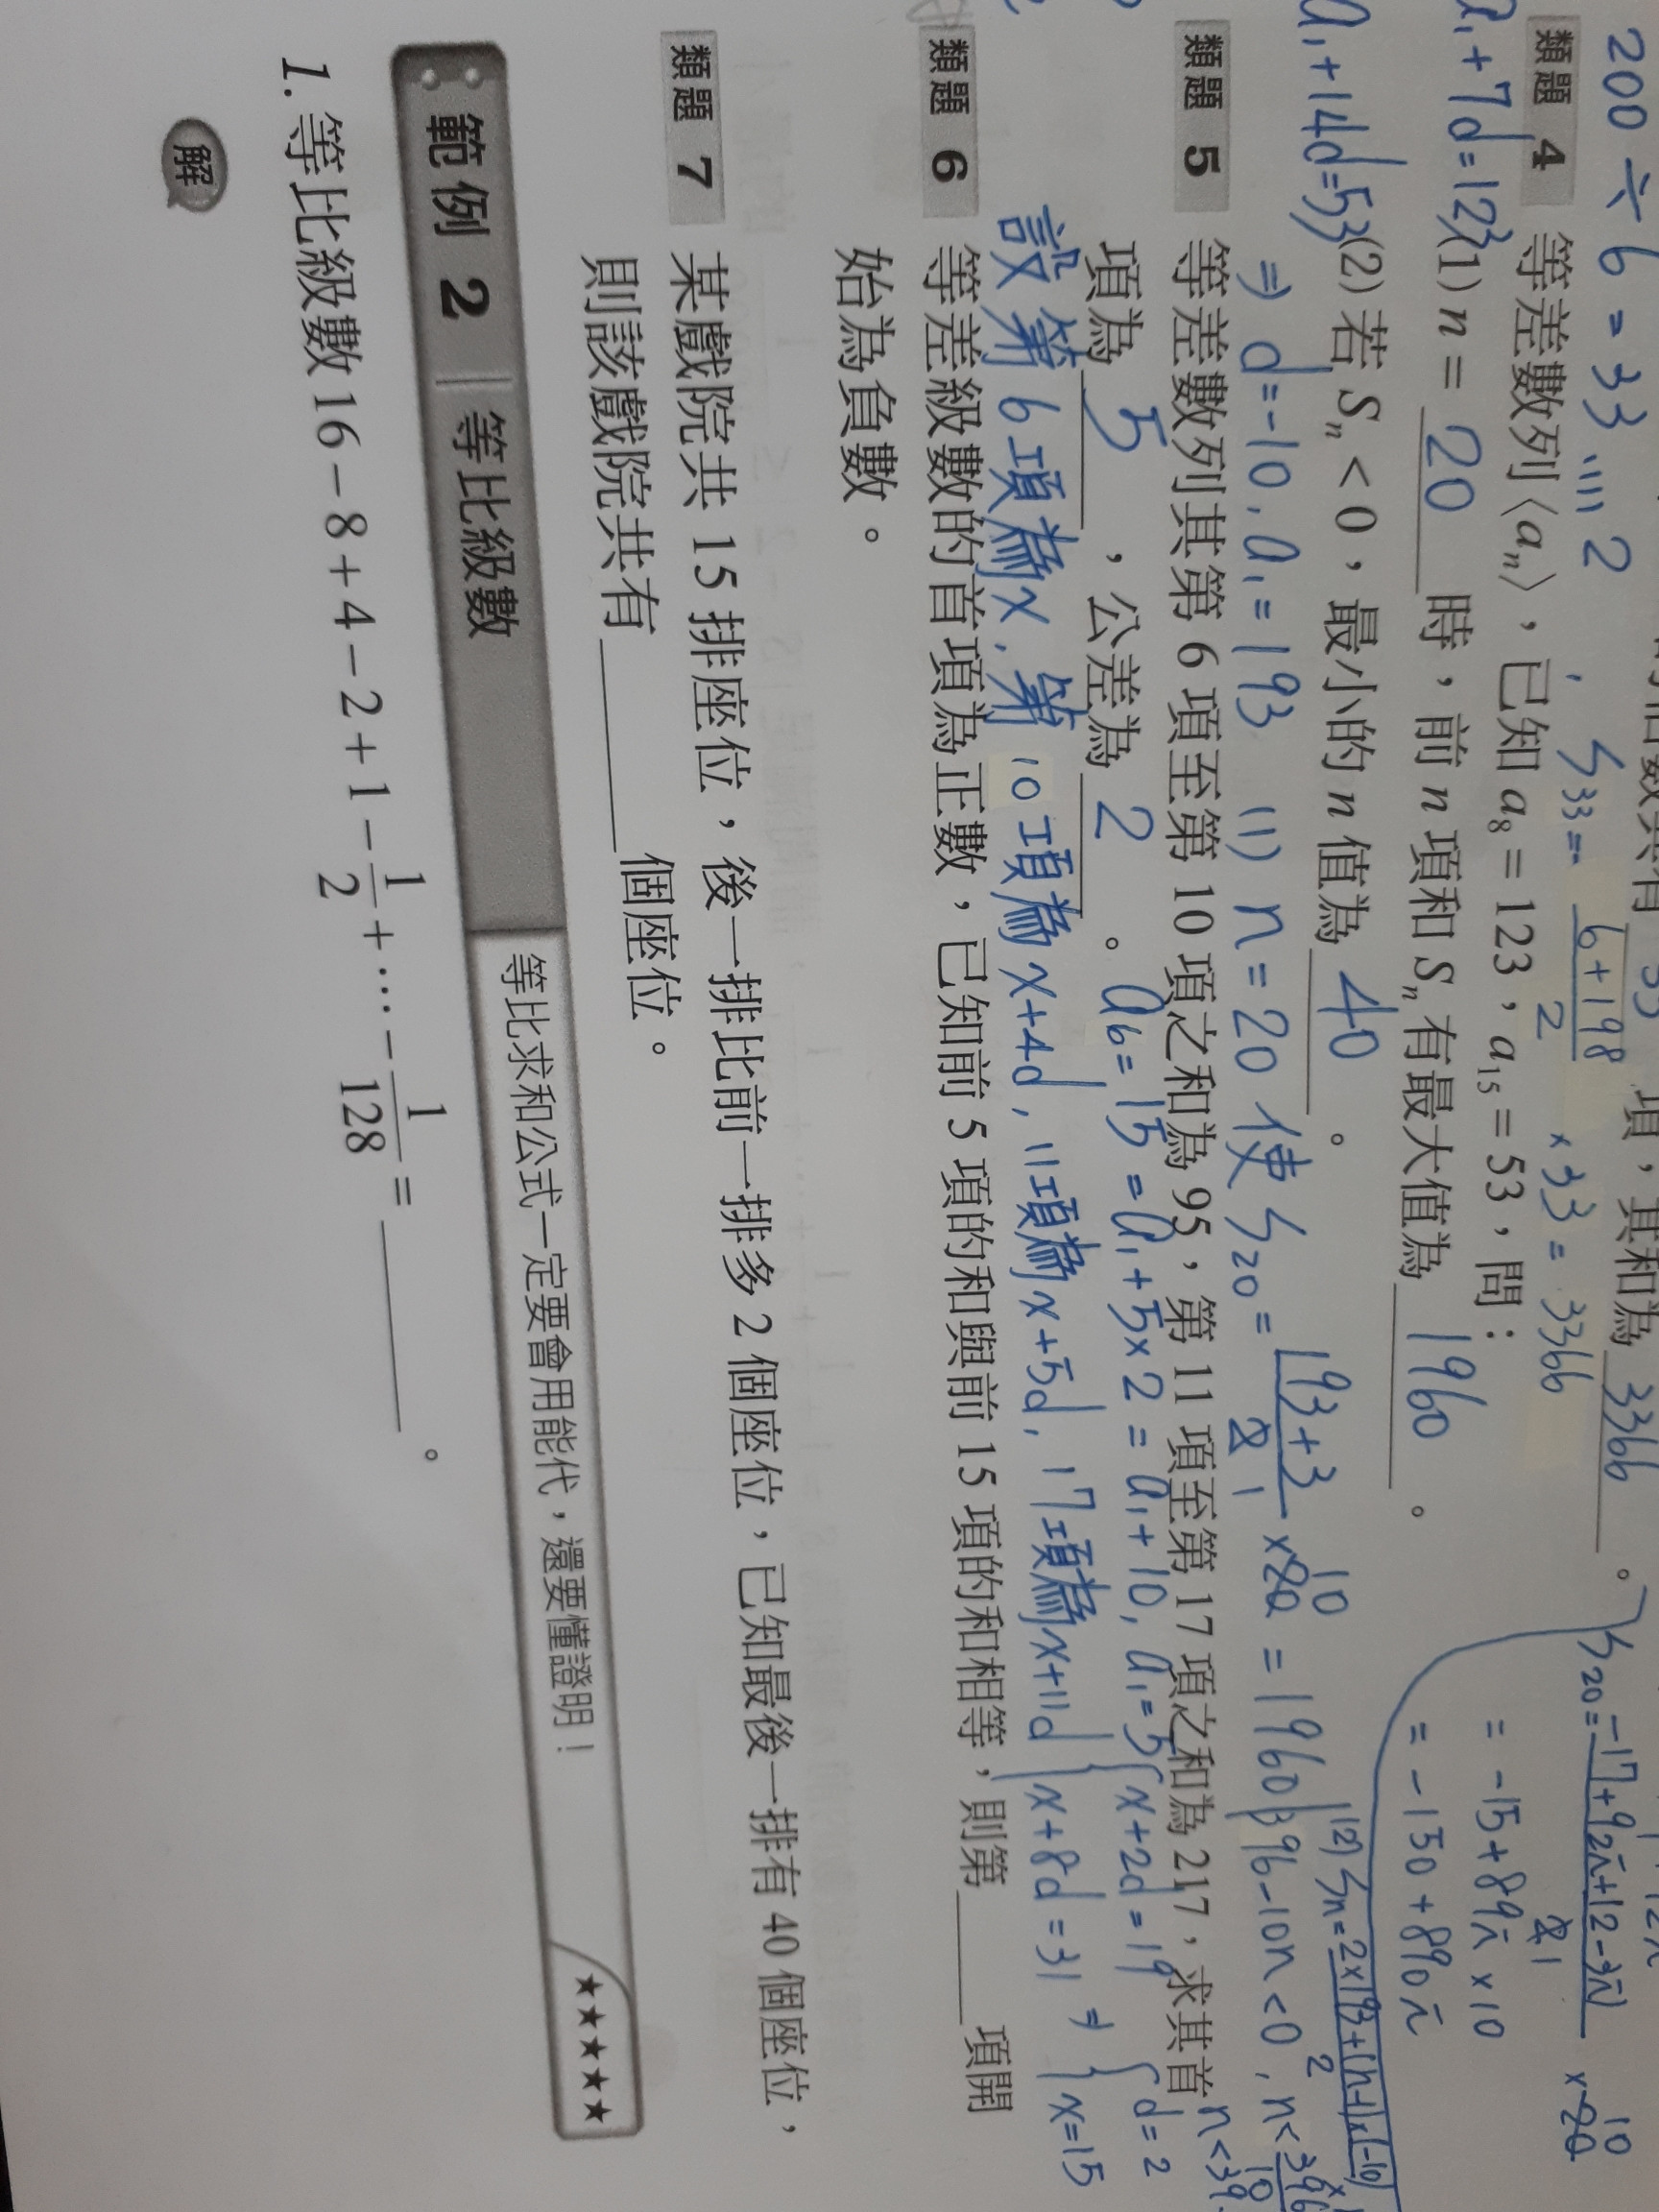 200÷6=33……2, S33= 6+198/2 ×33=3366
項,其和為 3366 。
S20= -17+92i+12-3i/2 ×20 10
= -15+89i ×10
= -150+890i
類題 4 等差數列〈an〉,已知 a8=123,a15=53,問:
a1+7d=123
(1) n= 20 時,前 n 項和 Sn 有最大值為 1960 。
a1+14d=53
(2) 若 Sn<0,最小的 n 值為 40 。
⇒ d=-10, a1=193 (1) n=20 使 S20= 193+3/2 1 ×20 10 =1960
(2) Sn= 2×193+(n-1)×(-10)/2
396-10n<0, n<396/10
n<39.
類題 5 等差數列其第 6 項至第 10 項之和為 95,第 11 項至第 17 項之和為 217,求其首
項為 5 ,公差為 2 。 a6=15=a1+5×2=a1+10, a1=5
設第 6 項為x, 第 10 項為 x+4d, 11項為 x+5d, 17項為x+11d
{x+2d=19
{x+8d=31 ⇒ {d=2
{x=15
類題 6 等差級數的首項為正數,已知前 5 項的和與前 15 項的和相等,則第____項開
始為負數。
類題 7 某戲院共 15 排座位,後一排比前一排多 2 個座位,已知最後一排有 40 個座位,
則該戲院共有________個座位。
範例 2 等比級數 等比求和公式一定要會用能代,還要懂證明! ★★★★★
1. 等比級數 16-8+4-2+1-1/2+…-1/128=________。
解